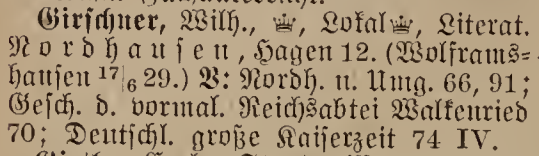 Girschner, Wilh., ♕, Lokal♕, Literat.
Nordhausen, Hagen 12. (Wolframs-
hausen 17/6 29.) V: Nordh. u. Umg. 66, 91;
Gesch. d. vormal. Reichsabtei Walkenried
70; Deutschl. große Kaiserzeit 74 IV.